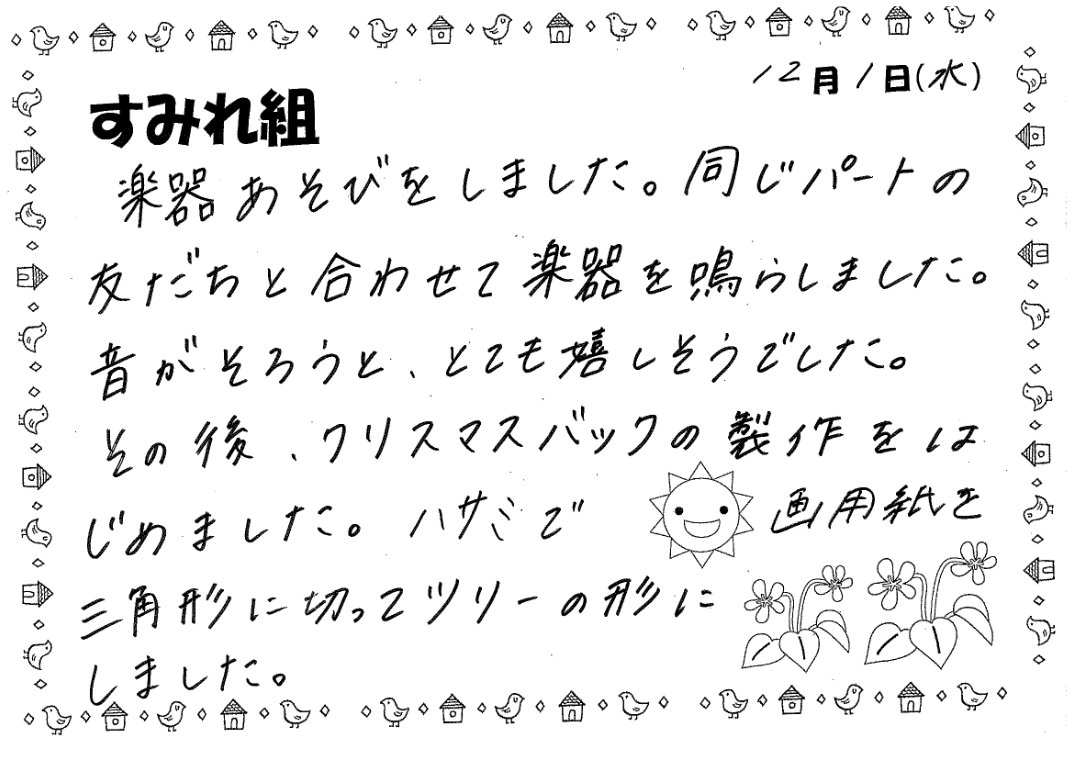 12月1日(水)
すみれ組
楽器あそびをしました。同じパートの
友だちと合わせて楽器を鳴らしました。
音がそろうと、とても嬉しそうでした。
その後、クリスマスバックの製作をは
じめました。ハサミで画用紙を
三角形に切ってツリーの形に
しました。